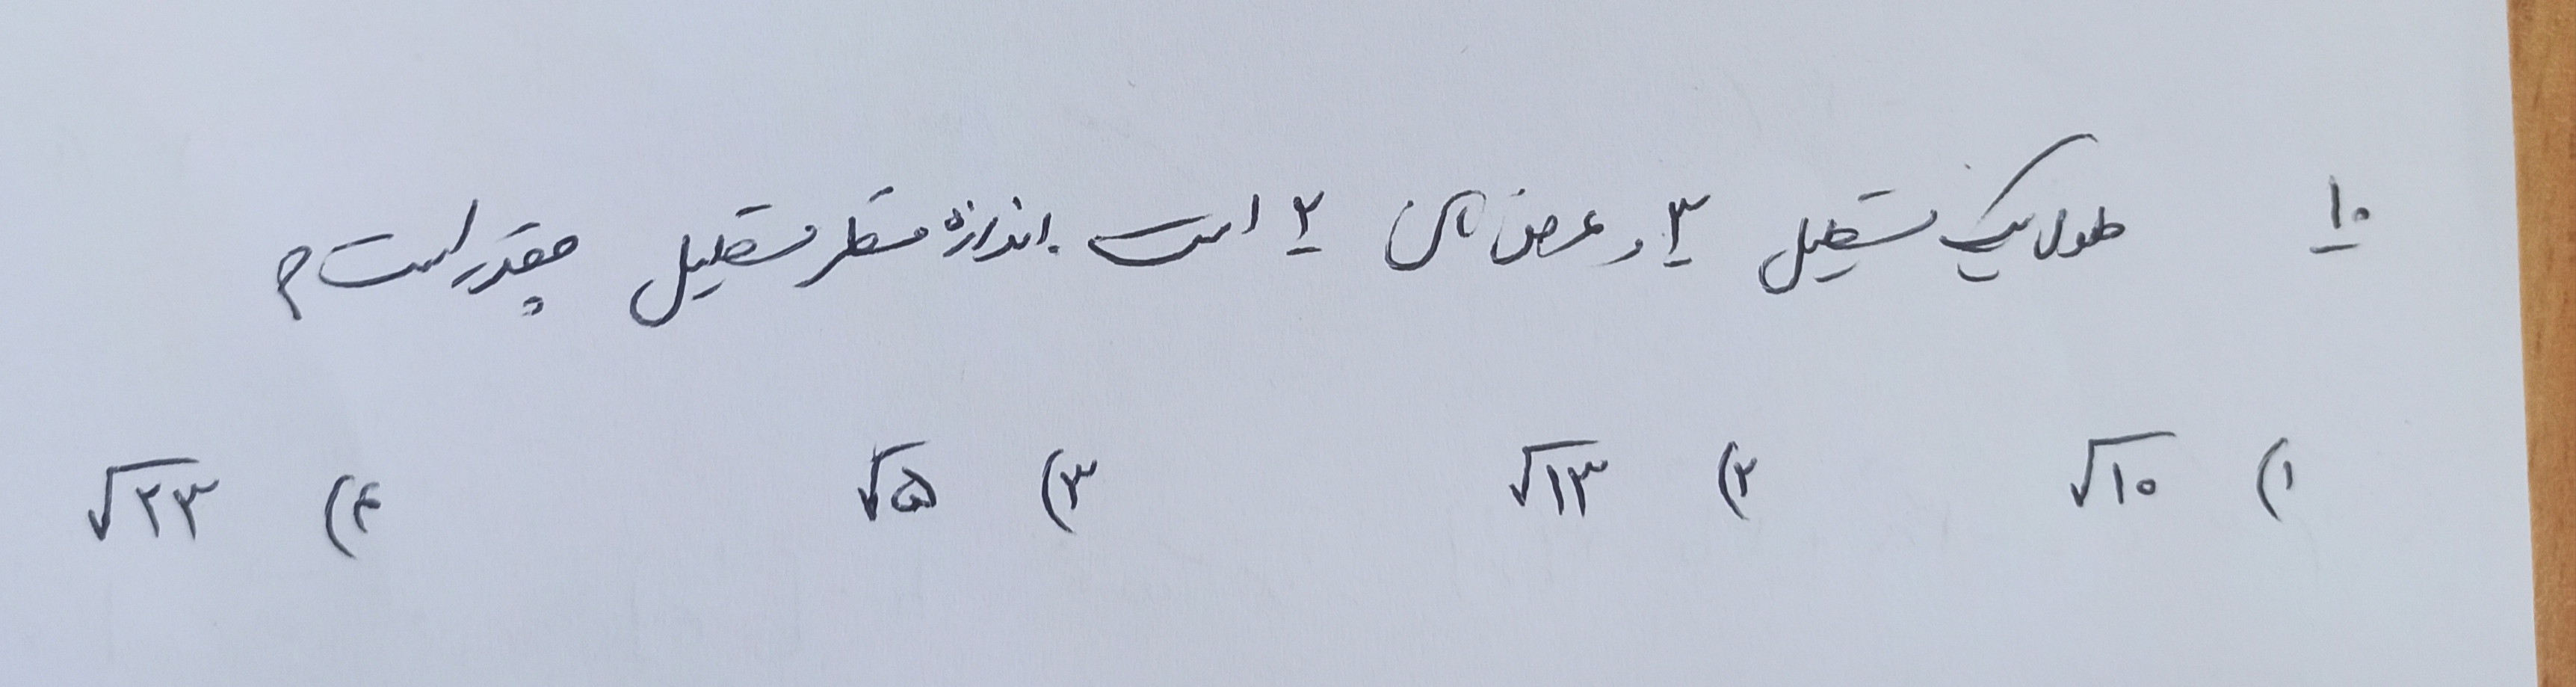 ۱۰ طول یک مستطیل ۳ و عرض آن ۲ است . اندازه قطر مستطیل چقدر است ؟
۱) √۱۰ ۲) √۱۳ ۳) √۵ ۴) √۲۳